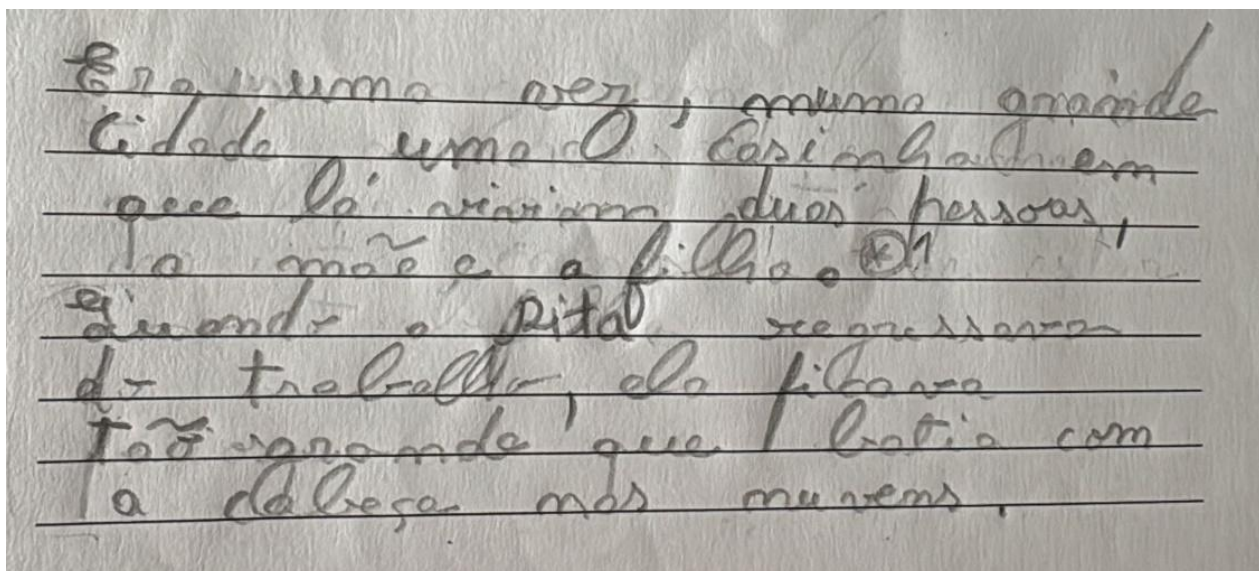 Era uma vez, numa grande
cidade uma casinha em
que lá viviam duas pessoas,
a mãe e a filha. *1
Quando a Rita regressava
do trabalho, ela ficava
tão grande que batia com
a cabeça nas nuvens.